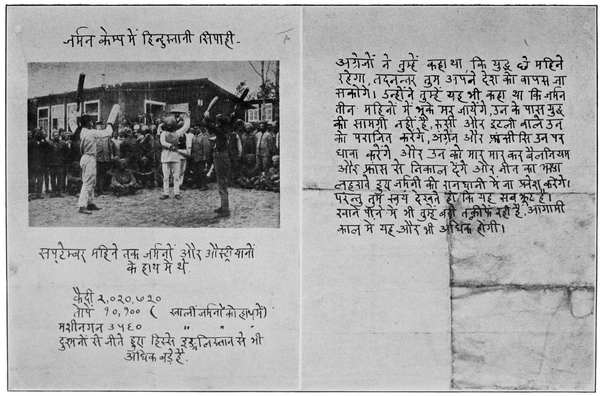 जर्मन केम्प में हिन्दुस्तानी सिपाही.
सप्टेम्बर महिने तक जर्मनों और औस्ट्रीयानों
के हाथ में थे
कैदी २,०२०,७२०
तोपें १०,१०० ( खाली जर्मनों को हाथ में)
मशीनगन ३५६० " " "
दुश्मनों से जीते हुए हिस्से इङ्गलिस्तान से भी
अधिक बड़े हैं.
अंग्रेजों ने तुम्हें कहा था, कि युद्ध छै महिने
रहेगा, तदनन्तर तुम अपने देश को वापस जा
सकोगे। उन्होंने तुम्हें यह भी कहा था कि जर्मन
तीन महिनों में भूके मर जायेंगे, उन के पास युद्ध
की सामग्री नहीं है, रूसी और इटली वाले उन
को पराजित करेंगे, अंग्रेज और फ्रान्सीसि उन पर
धावा करेंगे, और उन को मार मार कर बेलजियम
और फ्रांस से निकाल देंगे और जीत का झण्डा
लहराते हुए जर्मनी की राजधानी में जा प्रवेश करेंगे।
परन्तु तुम स्वयं देखते हो कि यह सब झूट है।
खाने पीने में भी तुम्हें बड़ी तक़लीफ़ें रही हैं. आगामी
काल में यह और भी अधिक होंगी।